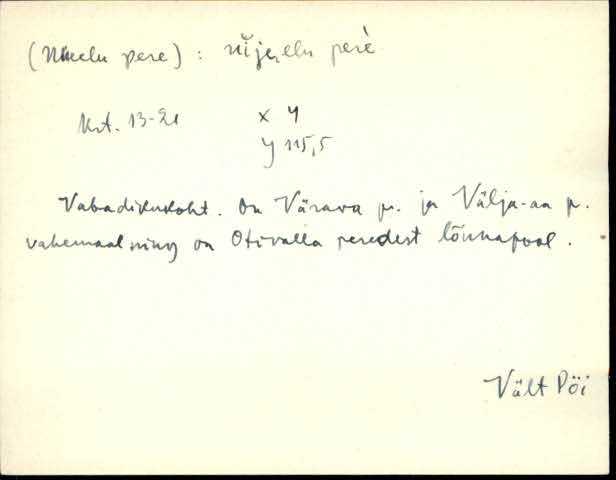 (Nuelu pere) : nĭje̬elu perè
Krt. 13-21 x 4
y 115,5
Vabadikukoht. On Värava p. ja Välja-aa p.
vahemaal ning on Otivalla peredest lõunapool.
Vält Pöi